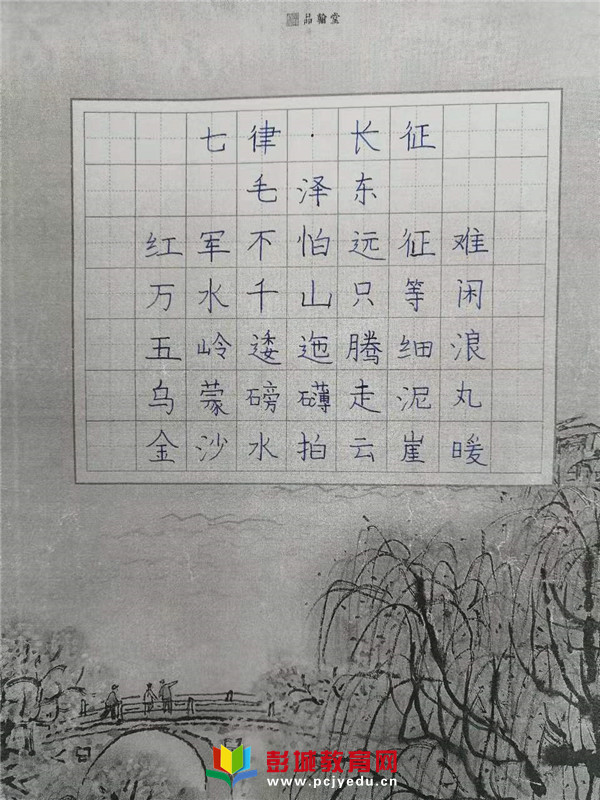 品翰堂
七律·长征
毛泽东
红军不怕远征难
万水千山只等闲
五岭逶迤腾细浪
乌蒙磅礴走泥丸
金沙水拍云崖暖
彭城教育网
www.pcjyedu.cn